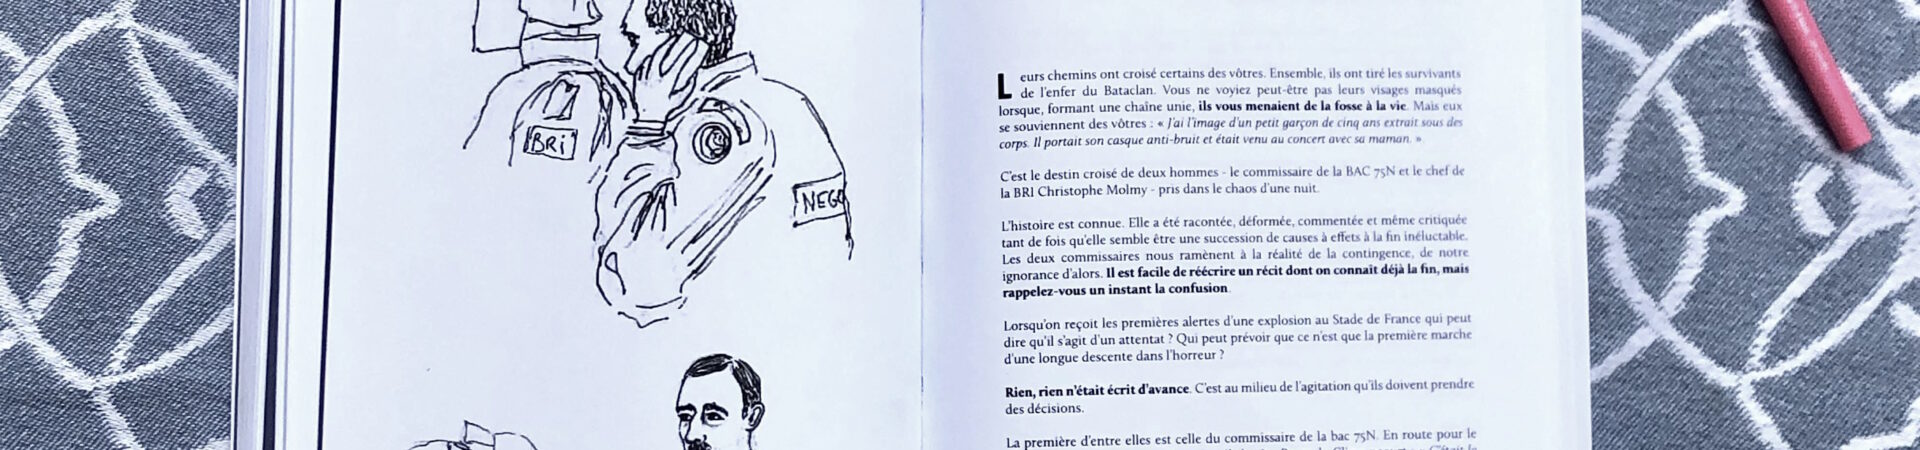 BRi
NEGO
Leurs chemins ont croisé certains des vôtres. Ensemble, ils ont tiré les survivants
de l'enfer du Bataclan. Vous ne voyiez peut-être pas leurs visages masqués
lorsque, formant une chaîne unie, ils vous menaient de la fosse à la vie. Mais eux
se souviennent des vôtres : « J'ai l'image d'un petit garçon de cinq ans extrait sous des
corps. Il portait son casque anti-bruit et était venu au concert avec sa maman. »
C'est le destin croisé de deux hommes - le commissaire de la BAC 75N et le chef de
la BRI Christophe Molmy - pris dans le chaos d'une nuit.
L'histoire est connue. Elle a été racontée, déformée, commentée et même critiquée
tant de fois qu'elle semble être une succession de causes à effets à la fin inéluctable.
Les deux commissaires nous ramènent à la réalité de la contingence, de notre
ignorance d'alors. Il est facile de réécrire un récit dont on connaît déjà la fin, mais
rappelez-vous un instant la confusion.
Lorsqu'on reçoit les premières alertes d'une explosion au Stade de France qui peut
dire qu'il s'agit d'un attentat ? Qui peut prévoir que ce n'est que la première marche
d'une longue descente dans l'horreur ?
Rien, rien n'était écrit d'avance. C'est au milieu de l'agitation qu'ils doivent prendre
des décisions.
La première d'entre elles est celle du commissaire de la bac 75N. En route pour le